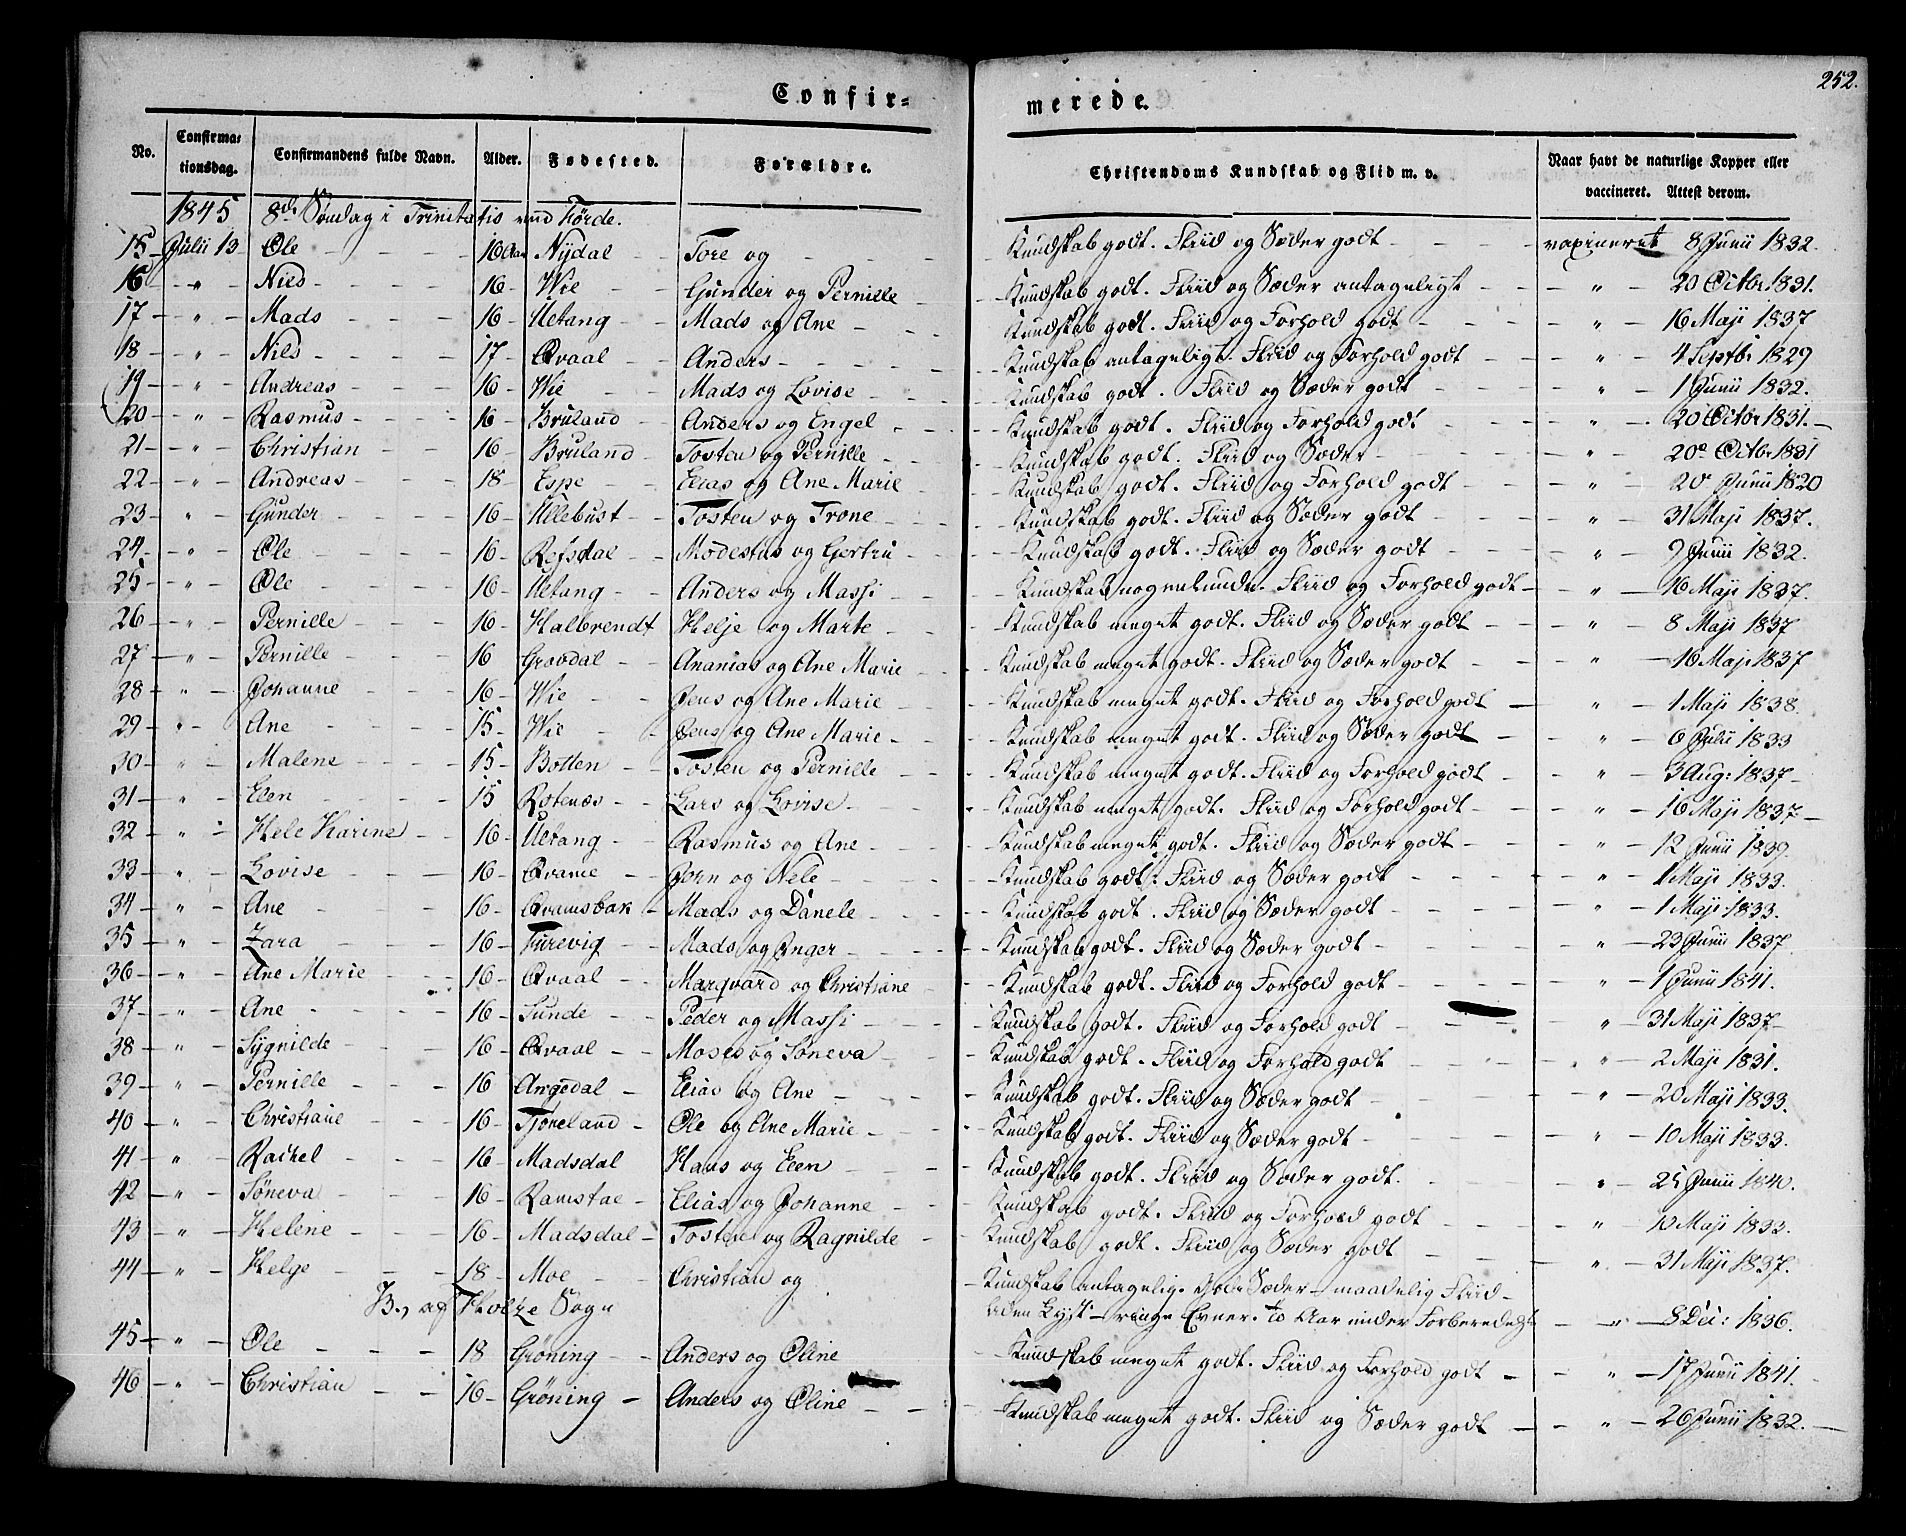 252.
Confirmerede.
No. Confirmationsdag. Confirmandens fulde Navn. Alder. Fødested. Forældre. Christendoms Kundskab og Flid m. v. Naar havt de naturlige Kopper eller vaccineret. Attest derom.
1845 8de Søndag i Trinitatis ved Førde.
15 Julii 13 Ole 16 Aar Nydal Tore og Kundskab godt. Fliid og Sæder godt vaxineret 8 Junii 1832.
16 " Niels 16 Wie Gunder og Pernille Kundskab godt. Fliid og Sæder antageligt " 20 Octbr 1831.
17 " Mads 16 Uetang Mads og Ane Kundskab godt. Fliid og Forhold godt " 16 Maji 1837
18 " Nils 17 Qvaal Anders Kundskab antageligt. Fliid og Forhold godt " 4 Septbr 1829
19 " Andreas 16 Wie Mads og Lovise Kundskab godt. Fliid og Sæder godt " 1 Junii 1832.
20 " Rasmus 16 Bruland Anders og Engel Kundskab godt. Fliid og Forhold godt " 20 Octbr 1831.
21 " Christian 16 Bruland Tosten og Pernille Kundskab godt. Fliid og Sæder " 20de Octbr 1831
22 " Andreas 18 Espe Elias og Ane Marie Kundskab godt. Fliid og Forhold godt " 20 Junii 1820
23 " Gunder 16 Ullebust Tosten og Trone Kundskab godt. Fliid og Sæder godt " 31 Maji 1837.
24 " Ole 16 Refsdal Modestus og Gertru Kundskab godt. Fliid og Sæder godt " 9 Junii 1832.
25 " Ole 16 Uetang Anders og Massi Kundskab nogenlunde. Fliid og Forhold godt " 16 Maji 1837.
26 " Pernille 16 Halbrendt Helje og Marte Kundskab meget godt. Fliid og Sæder godt " 8 Maji 1837
27 " Pernille 16 Grovdal Ananias og Ane Marie Kundskab meget godt. Fliid og Sæder godt " 16 Maji 1837
28 " Johanne 16 Wie Jens og Ane Marie Kundskab meget godt. Fliid og Forhold godt " 1 Maji 1838.
29 " Ane 15 Wie Jens og Ane Marie Kundskab meget godt. Fliid og Sæder godt " 6 Julii 1833
30 " Malene 15 Botten Tosten og Pernille Kundskab meget godt. Fliid og Forhold godt " 3 Aug: 1837
31 " Elen 15 Rotenæs Lars og Lovise Kundskab meget godt. Fliid og Forhold godt " 16 Maji 1837
32 " Hele Karine 16 Uetang Rasmus og Ane Kundskab meget godt. Fliid og Sæder godt " 12 Junii 1839.
33 " Lovise 16 Qvame Jorn og Nele Kundskab godt. Fliid og Sæder godt " 1 Maji 1833.
34 " Ane 16 Qvamsbak Mads og Danele Kundskab godt. Fliid og Sæder godt " 1 Maji 1833.
35 " Zara 16 Furevig Mads og Inger Kundskab godt. Fliid og Sæder godt " 23 Junii 1837.
36 " Ane Marie 16 Qvaal Marqvard og Christiane Kundskab godt. Fliid og Forhold godt " 1 Junii 1841.
37 " Ane 16 Sunde Peder og Massi Kundskab godt. Fliid og Forhold godt " 31 Maji 1837
38 " Sygnilde 16 Qvaal Moses og Søneva Kundskab godt. Fliid og Forhold godt " 2 Maji 1831.
39 " Pernille 16 Angedal Elias og Ane Kundskab godt. Fliid og Sæder godt " 20 Maji 1833.
40 " Christiane 16 Tjøneland Ole og Ane Marie Kundskab godt. Fliid og Sæder godt " 10 Maji 1833.
41 " Rachel 16 Madsdal Hans og Elen Kundskab godt. Fliid og Sæder godt. " 25 Junii 1840.
42 " Søneva 16 Ramstad Elias og Johanne Kundskab godt. Fliid og Forhold godt " 10 Maji 1833.
43 " Helene 16 Madsdal Tosten og Ragnilde Kundskab godt. Fliid og Sæder godt " 31 Maji 1837.
44 " Helge 18 Moe Christian og Kundskab antagelig. Gode Sæder maadelig Fliid
uden Lyst ringe Evner. to Aar under Forberedelse " 8 Dec: 1836.
B., af Holze Sogn
45 " Ole 18 Grøning Anders og Oline Kundskab meget godt. Fliid og Forhold godt " 17 Junii 1841.
46 " Christian 16 Grøning Anders og Oline Kundskab meget godt. Fliid og Sæder godt " 26 Junii 1832.